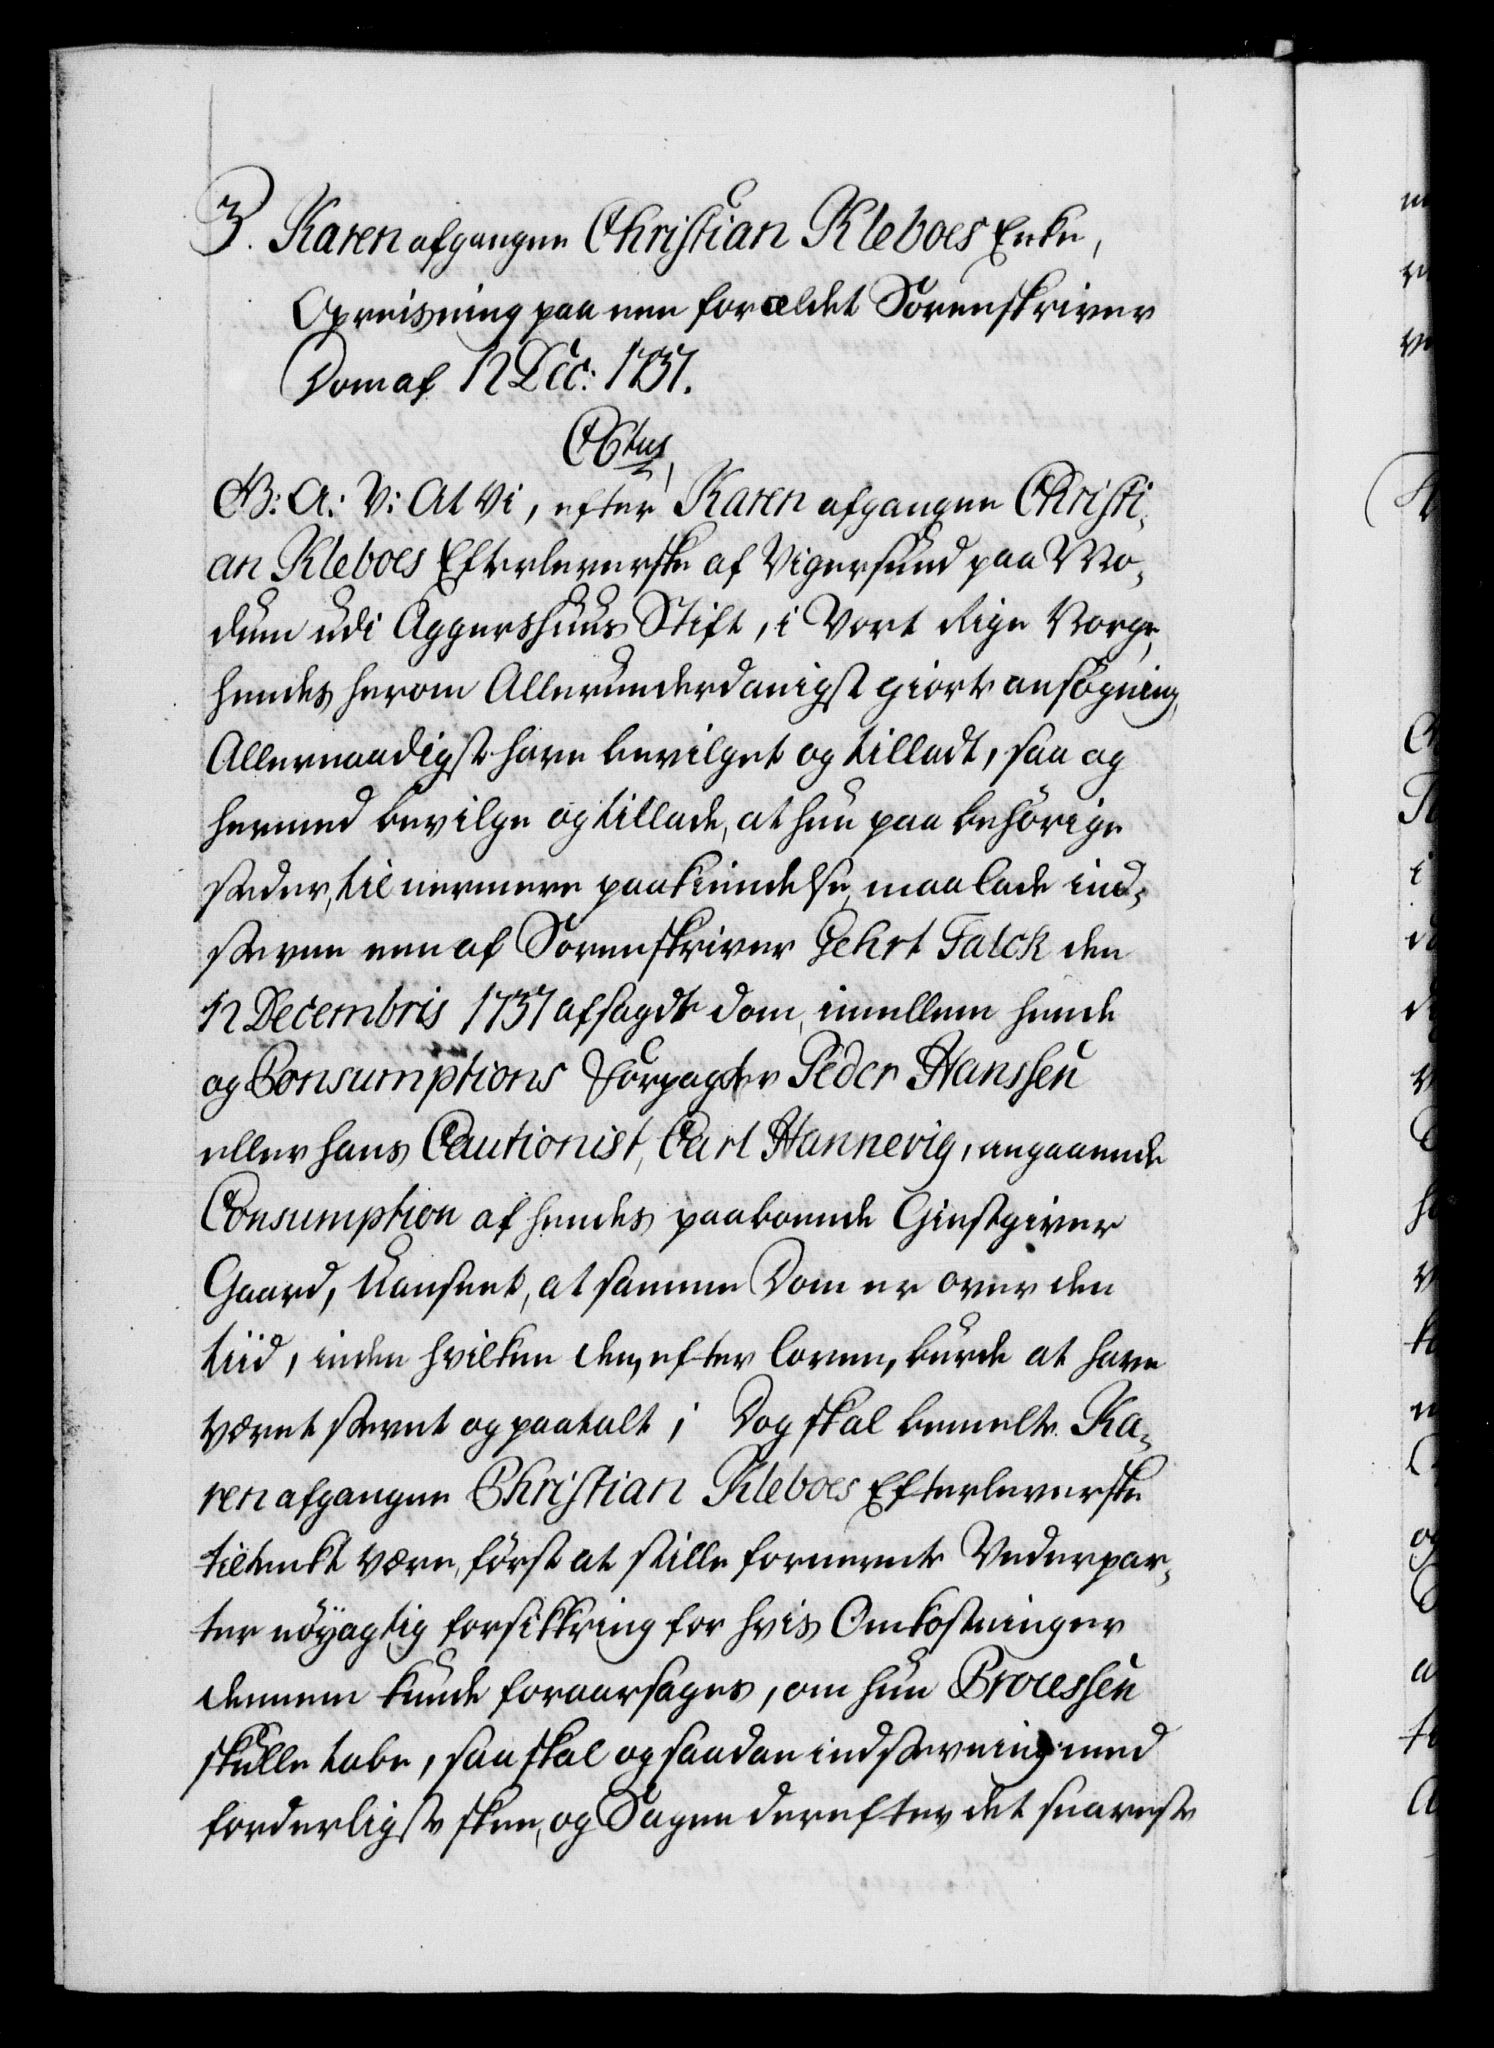 3. Karen afgangne Christian Kleboes Enke,
Opreisning paa een forældet Sorenskriver
Dom af 12 Dec: 1737.
C6tus
G: A: V: At Vi, efter Karen afgangne Christi-
an Kleboes Efterleverske af Vigersund paa Mo-
dum udi Aggershuus Stift, i Vort Rige Norge,
hendes herom Allerunderdanigst giorte ansøgning,
Allernaadigst have bevilget og tilladt, saa og
hermed bevilge og tillade, at hun paa behörige
stæder, til nermere paakiendelse, maa lade ind-
stevne een af Sorenskriver Gehrt Falck den
12 Decembris 1737 afsagdt dom, imellem hende
og Consumptions Forpagter Peder Hanssen
eller hans Cautionist, Carl Hannevig, angaaende
Consumption af hendes paaboende Giestgiver
Gaard, Uanseet, at samme Dom er over den
tiid, inden hvilken den, efter loven, burde at have
været stevnt og paatalt; Dog skal bemelte Ka-
ren afgangne Christian Kleboes Efterleverske
tiltenkt være, först at stille fornevnte Vederpar-
ter nöyagtig forsikkring for hvis Omkostninger
dennem kunde foraarsages, om hun Processen
skulle tabe, saa skal og saadan indstevning med
forderligste skee, og Sagen derefter det snareste